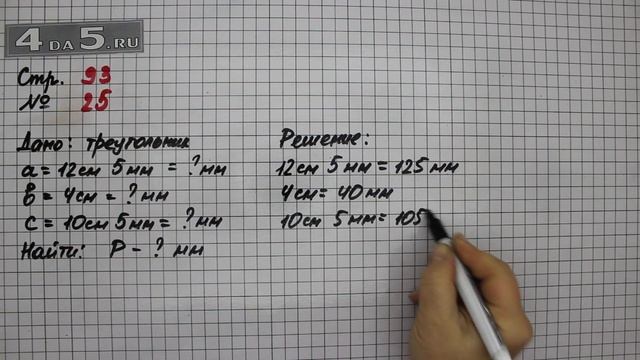 4DA5.RU
Стр. 93
№ 25
Дано: треугольник
a = 12см 5мм = ? мм
b = 4см = ? мм
c = 10см 5мм = ? мм
Найти: P - ? мм
Решение:
12см 5мм = 125мм
4см = 40мм
10см 5мм = 105